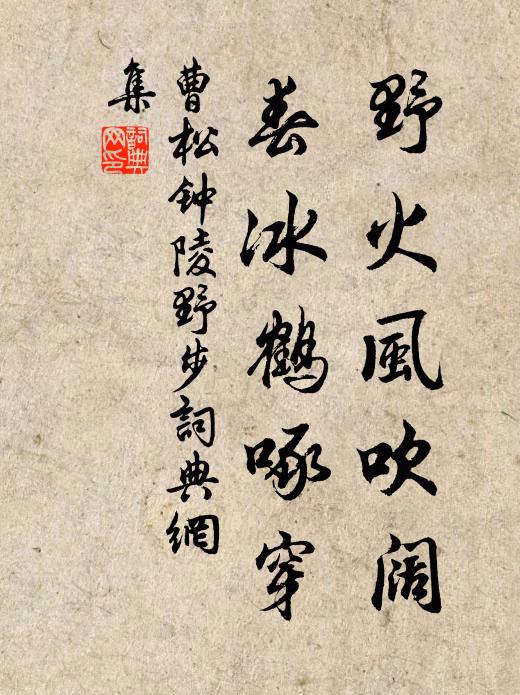 野火風吹阔
春冰鶴啄穿
曹松钟陵野步詞典網
集
詞典网印